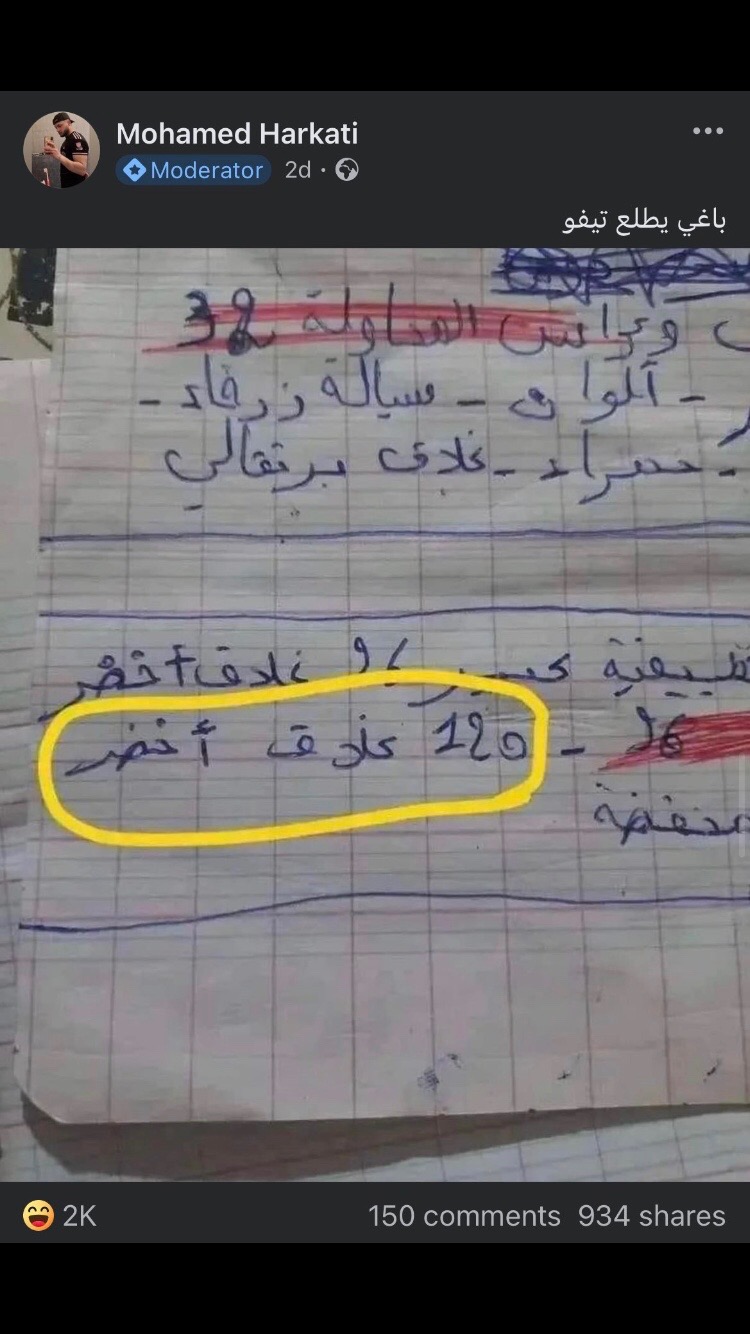 Mohamed Harkati
Moderator 2d
باغي يطلع تيفو
وكراس المحاولة 32
- ألوان - سيالة زرقاء -
- حمراء - غلاف برتقالي
كبير 96 غلاف أخضر
96 - 120 غلاف أخضر
2K 150 comments 934 shares